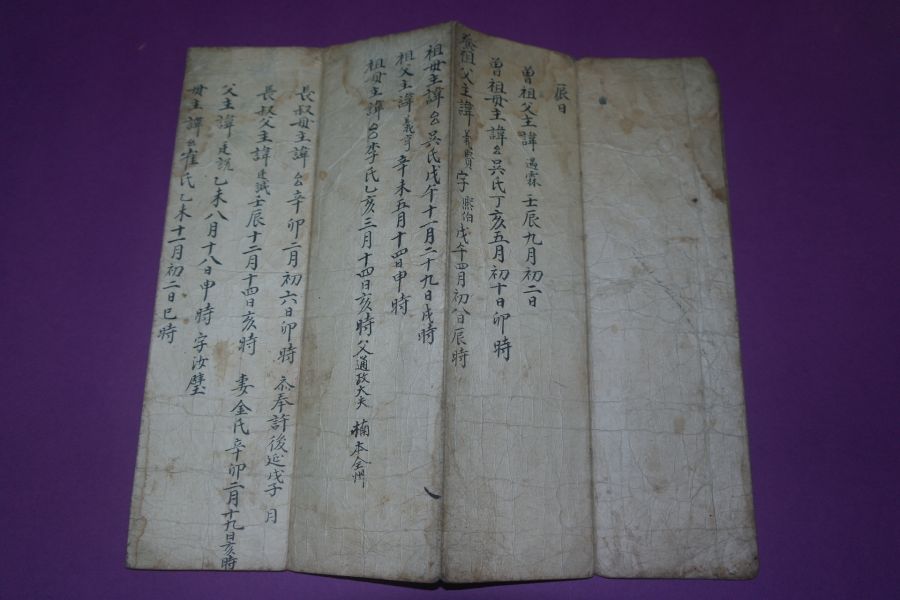 辰日
曾祖父主諱遇霖壬辰九月初二日
曾祖母主諱呂吳氏丁亥五月初十日卯時
祖父主諱義賓字熙伯戊午四月初八日辰時
祖母主諱呂吳氏戊午十一月二十九日戌時
祖父主諱義 辛未五月十四日申時
祖母主諱呂李氏乙亥三月十四日亥時父通政大夫 楠本全州
長叔母主諱呂辛卯二月初六日卯時 奉許後延戊子 月
長叔父主諱廷誠壬辰十二月十四日亥時 妻金氏辛卯二月十九日亥時
父主諱廷説乙未八月十八日申時 字汝璧
母主諱呂崔氏乙未十一月初二日巳時